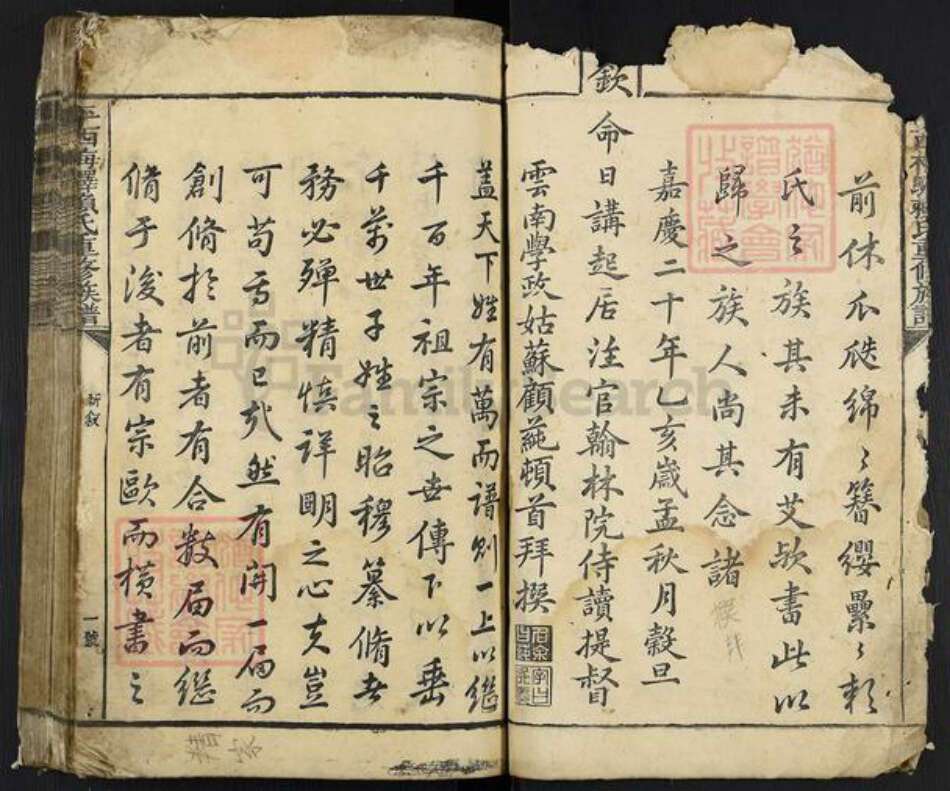 前休瓜瓞綿〻簪纓纍〻賴
氏之族其未有艾歟書此以
歸之族人尚其念諸
嘉慶二十年乙亥歲孟秋月穀旦
欽
命日講起居注官翰林院侍讀提督
雲南學政姑蘇顧蒓頓首拜撰
蓋天下姓有萬而譜則一上以繼
千百年祖宗之世傳下以垂
千萬世子姓之昭穆纂脩者
務必殫精慎詳明之心夫豈
可苟焉而已哉然有開一局而
創脩於前者有合數局而繼
脩于後者有宗歐而橫書之
氏重修族譜
新敘
一號
FamilySearch